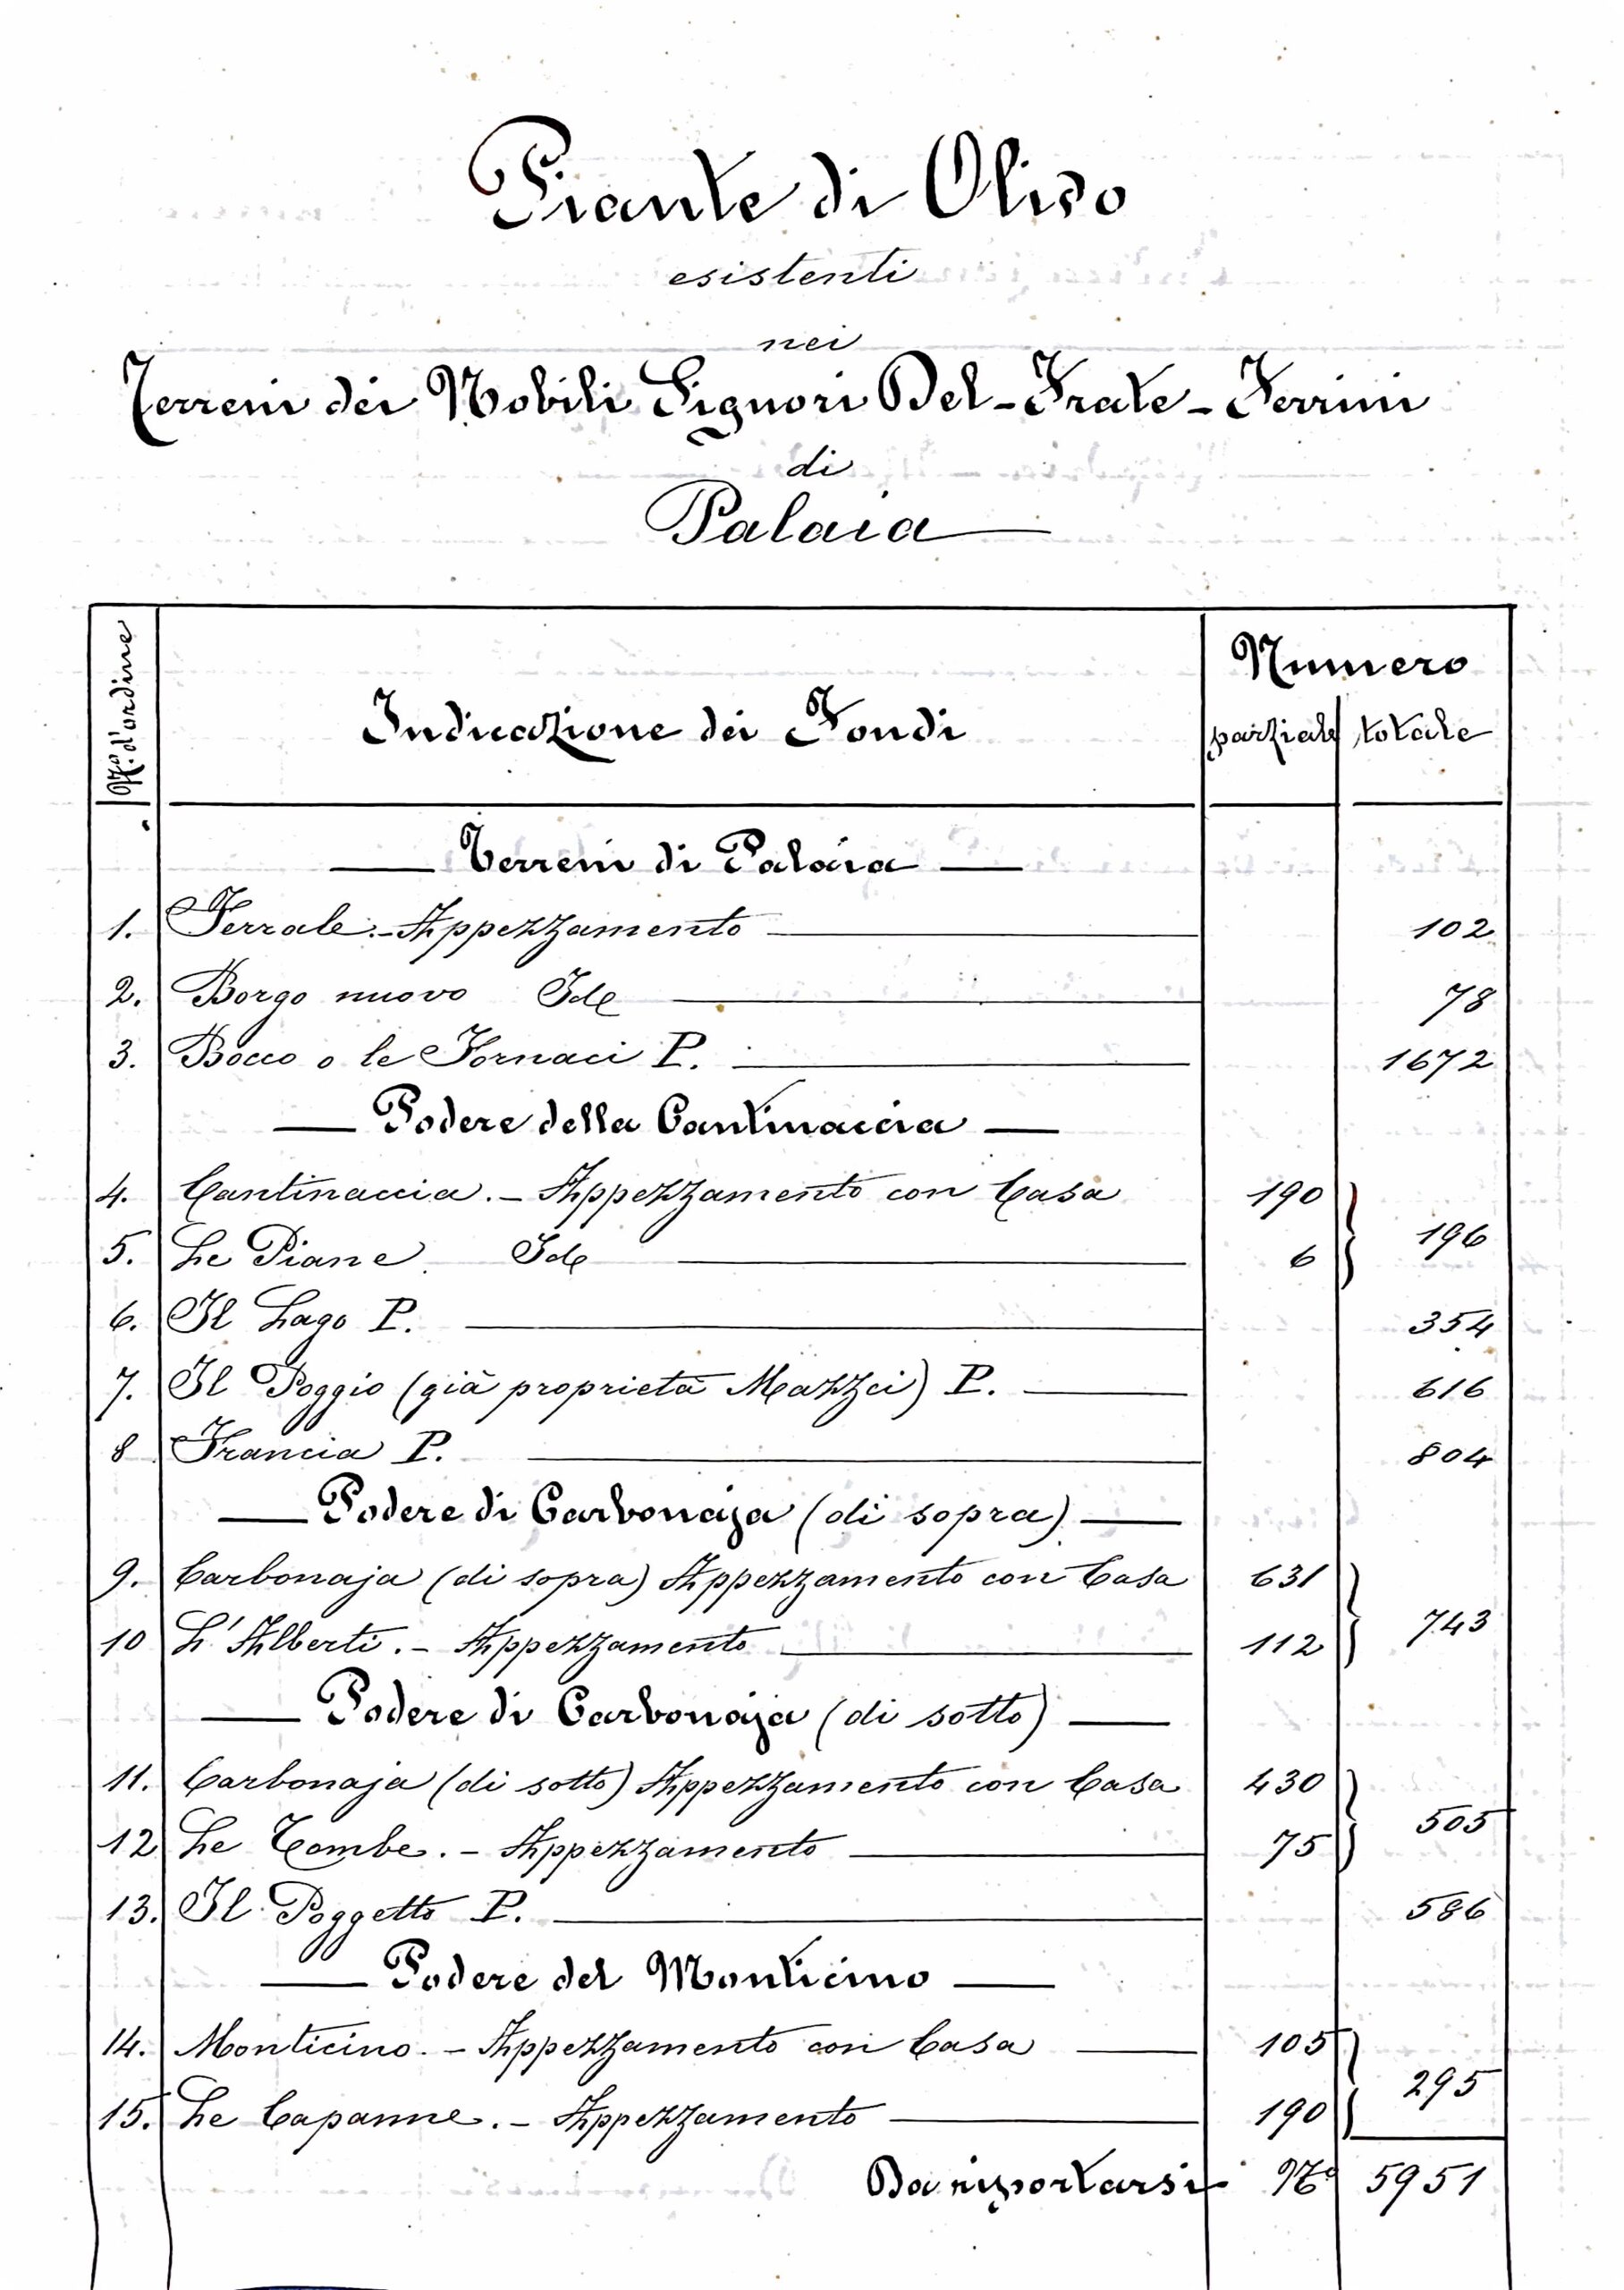 Piante di Olivo
esistenti
nei
Terreni dei Nobili Signori Del-Frate-Ferrini
di
Palaia
N.° d'ordine
Indicazione dei Fondi
Numero
parziale totale
Terreni di Palaia
1. Ferrale.- Appezzamento 102
2. Borgo nuovo Ide 78
3. Bocco o le Fornaci P. 1672
Podere della Cantinaccia
4. Cantinaccia.- Appezzamento con Casa 190
196
5. Le Piane Ide 6
6. Il Lago P. 354
7. Il Poggio (già proprietà Mazzei) P. 616
8 Francia P. 804
Podere di Carbonaja (di sopra)
9. Carbonaja (di sopra) Appezzamento con Casa 631
743
10 L'Alberti.- Appezzamento 112
Podere di Carbonaja (di sotto)
11. Carbonaja (di sotto) Appezzamento con Casa 430
505
12 Le Tombe.- Appezzamento 75
13. Il Poggetto P. 586
Podere del Monticino
14. Monticino.- Appezzamento con Casa 105
295
15. Le Capanne.- Appezzamento 190
Da riportarsi N.° 5951